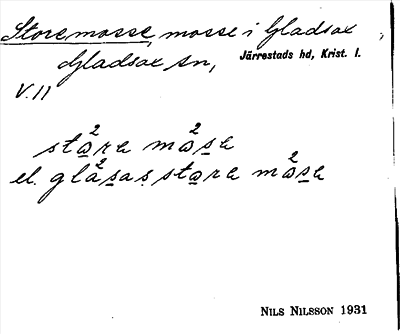 Storemosse, mosse i Gladsax,
Gladsax sn, Järrestads hd, Krist. l.
V. 11
sta²re ma²sa
el. gla²sas stara ma²sa
NILS NILSSON 1931